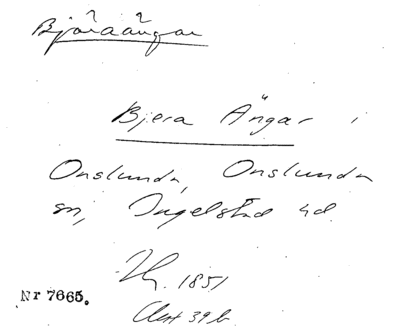 Bjäraängar
Bjera Ängar i
Onslunda, Onslunda
sn, Ingelstad hd.
1851
Akt 39 b
Nr 7665.